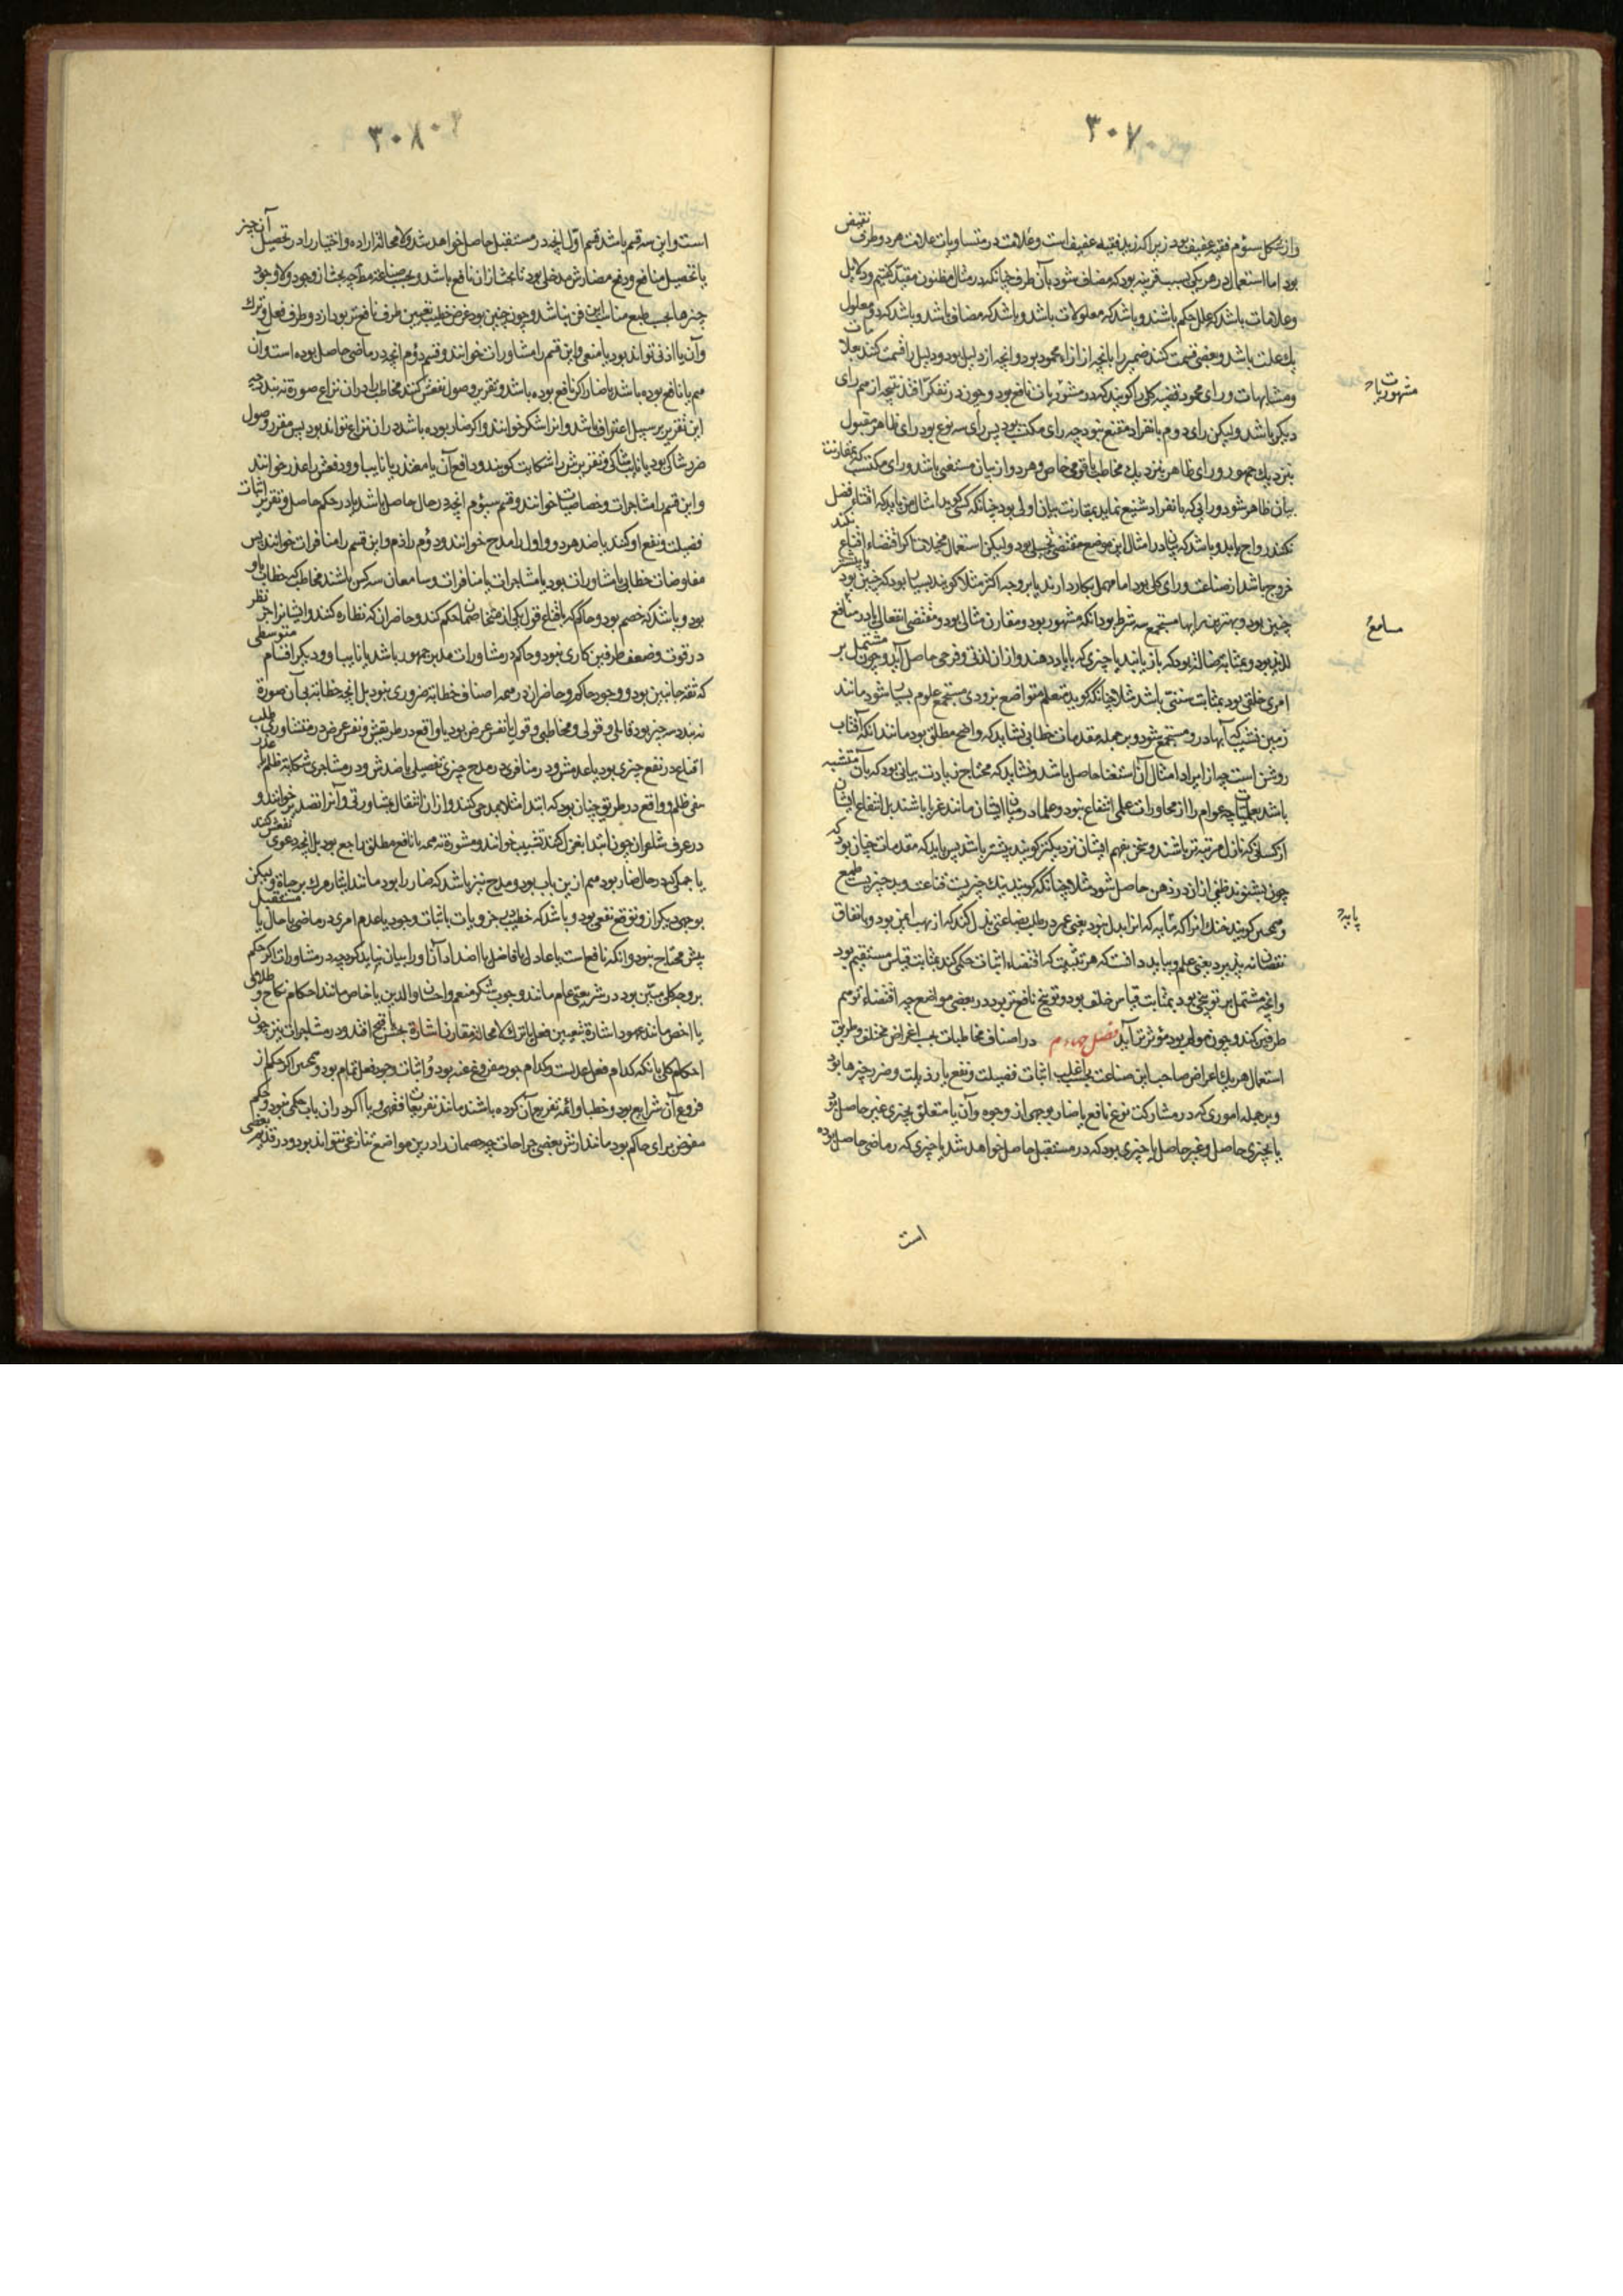 ۳۰۷
واز شکل سؤم فقیه عفیف بود زیرا که زید فقیه عفیف است وعلامت در متساویات علامت هر دو طرف نقیض
بود اما استعمال در هر یکی بسبب قرینه بود که مضاف شود بآن طرف چنانکه در مثال مظنون مقید گفتیم ودلایل
وعلامات باشد که علل حکم باشند وباشد که معلولات باشند وباشد که مضاف باشد وباشد که دو معلول
یک علت باشد وبعضی قسمت کنند ضمیر را بانچه از اراء محمود بود وانچه از دلیل بود ودلیل را قسمت کنند بعلامات
ومشابهات ورای محمود قضیه کلی را گویند که در مشوریات نافع بود وچون در تفکر افتد نتیجه از هم رای
دیگر باشد ولیکن رای دوم بانفراد مقنع نبود چه رای مکتسب بود پس رأی سه نوع بود رای ظاهر مقبول
بنزدیک جمهور ورای ظاهر بنزدیک مخاطب یا قومی خاص وهر دو از بیان مستغنی باشد ورای مکتسب که بمقارنت
بیان ظاهر شود ورایی که بانفراد شنیع نماید بمقارنت بیان اولی بود چنانکه کسی گوید امثال من باید که اقتناء فضل
نکند رواج یابد وباشد که بیان در امثال این موضع مقتضی تخییل بود ولیکن استعمال مخیلات اگر اقتضاء اقناع نکند
خروج باشد از صناعت ورای کلی بود اما مهمل بکار دارند یا بر وجه اکثر مثلا گویند بسیار بود که چنین بود یا بیشتر
چنین بود وبهترین رایها مستجمع سه شرط بود انکه مشهور بود ومقارن مثالی بود ومقتضی انفعالی از در منافع
لذیذ بود وبمثابت ضالتی بود که باز یابند یا چیزی که با یاد دهند واز ان لذتی وفرحی حاصل آید وچون مشتمل بر
امری خلقی بود بمثابت سنتی باشد مثلا چنانکه گوید متعلم متواضع بزودی مستجمع علوم بسیار شود مانند
زمین نشیب که آبها در و مستجمع شود وبر جمله مقدمات خطابی نشاید که واضح مطلق بود مانند انکه آفتاب
روشن است چه از ایراد امثال آن استغنا حاصل باشد ونشاید که محتاج زیادت بیانی بود که بآن متشبه
باشد بعلمیات چه عوام را از محاورات علمی انتفاع نبود وعلما در میان ایشان مانند غربا باشند بل انتفاع ایشان
از کسانی که نازل مرتبه‌تر باشند وسخن بفهم ایشان نزدیکتر گویند بیشتر باشد پس باید که مقدمات چنان بود که
چون بشنوند ظنی از ان در ذهن حاصل شود مثلا چنانکه گویند نیک چیزیست قناعت وبد چیزیست طمع
وهمچنین گویند خنک انرا که مایه که انرا بدل نبود یعنی عمر در طلب بضاعتی بذل کند که از نهب ایمن بود وبانفاق
نقصان نپذیرد یعنی علم وبباید دانست که هر تثبیت که اقتضاء اثبات حکمی کند بمثابت قیاس مستقیم بود
وانچه مشتمل بر توبیخی بود بمثابت قیاس خلف بود وتوبیخ نافع‌تر بود در بعضی مواضع چه اقتضاء ترسم
طرفین کند وچون مولم بود مؤثرتر آید فصل چهارم در اصناف مخاطبات بحسب اغراض مختلف وطریق
استعمال هر یک اغراض صاحب این صناعت بحسب اغلب اثبات فضیلت ونفع یا رذیلت وضرر چیزها بود
وبر جمله اموری که در مشارکت نوع نافع یا ضار بوجهی از وجوه وآن یا متعلق بچیزی غیر حاصل بود
یا بچیزی حاصل وغیر حاصل یا چیزی بود که در مستقبل حاصل خواهد شد یا چیزی که در ماضی حاصل بوده
است
مشهوریات
مسامع
پایه
۳۰۸
است واین سه قسم باشد قسم اول انچه در مستقبل حاصل خواهد شد ولامحاله اراده واختیار را در تحصیل آن چیز
یا تحصیل منافع ودفع مضارش مدخلی بود تا بحث از ان نافع باشد وبحسب صناعت چه بحث از وجود ولاوجود
چیزها بحسب طبع مناسب این فن نباشد وچون چنین بود غرض خطیب تعیین طرف نافع‌تر بود از دو طرف فعل وترک
وآن یا اذنی تواند بود یا منعی واین قسم را مشاورات خوانند وقسم دؤم انچه در ماضی حاصل بوده است وآن
هم یا نافع بوده باشد یا ضار اگر نافع بوده باشد وتقریر وصول نفعش کنند مخاطب را در ان نزاع صورة نه بندد چه
این تقریر بر سبیل اعتراف باشد وانرا شکر خوانند واگر ضار بوده باشد در ان نزاع تواند بود پس مقرر وصول
ضرر شاکی بود یا نایب شاکی وتقریرش را شکایت گویند ودافع آن یا معتذر یا نایب او ودفعش را عذر خوانند
واین قسم را مشاجرات وخصامات خوانند وقسم سیؤم انچه در حال حاصل باشد یا در حکم حاصل وتقریر اثبات
فضیلت ونفع او کنند یا ضد هر دو واول را مدح خوانند ودؤم را ذم واین قسم را منافرات خوانند پس
مفاوضات خطابی یا مشاورات بود یا مشاجرات یا منافرات وسامعان سه کس باشند مخاطب که خطاب با او
بود وباشد که خصم بود وحاکم که باقناع قول یکی از متخاصمان حکم کند وحاضران که نظاره کنند وایشانرا جز نظر
در قوت وضعف طرفین کاری نبود وحاکم در مشاورات مدبر جمهور باشد یا نایب او ودر دیگر اقسام متوسطی
که ثقه جانبین بود ووجود حاکم وحاضران در همه اصناف خطابه ضروری نبود بل انچه خطابه بی آن صورة
نه بندد سه چیز بود قایلی وقولی ومخاطبی وقول یا نفس غرض بود یا واقع در طریقش ونفس غرض در مشاورتی طلب
اقناع در نفع چیزی بود یا عدمش ودر منافری در مدح چیزی بفضیلتی یا ضدش ودر مشاجری شکایة ظلم یا عذر
بنفی ظلم وواقع در طریق چنان بود که ابتدا مثلا بمدحی کنند واز ان انتقال بمشاورتی وآنرا تصدیر خوانند و
در عرف شاعران چون ابتدا بغزل کنند تشبیب خوانند ومشورة نه همه با نافع مطلق راجع بود بل انچه دعوی نفعش کنند
یا جمیلی که در حال ضار بود هم از ین باب بود ومدح نیز باشد که ضار را بود مانند ایثار مرگ بر حیاة ولیکن
بوجهی دیگر از وتوقع نفعی بود وباشد که خطیب در جزویات باثبات وجود یا عدم امری در ماضی یا حال یا مستقبل
پیش محتاج نبود وانکه نافع است یا عادل یا فاضل یا اضداد آن اورا بیان نباید کرد چه در مشاورات اگر حکم
بر وجه کلی مبین بود در شریعتی عام مانند وجوب شکر منعم واحسان والدین یا خاص مانند احکام نکاح وطلاق
یا اخص مانند عهود اشارة بتعیین فعل یا ترک لامحاله مقارن اشارة بحسن یا قبح افتد ودر مشاجرات نیز چون
احکام کلی بانکه کدام فعل عدلست وکدام جور مفروغ عنه بود واثبات وجود فعل تمام بود وهمچنین اگر حکم از
فروع آن شرایع بود وخطبا وائمه تفریع آن کرده باشند مانند تفریعات فقهی ویا اگر در ان باب حکمی نبود وحکم
مفوض برای حاکم بود مانند ارش بعضی جراحات چه خصمان را در ین مواضع تنازعی نتواند بود ودر قدر بعضی